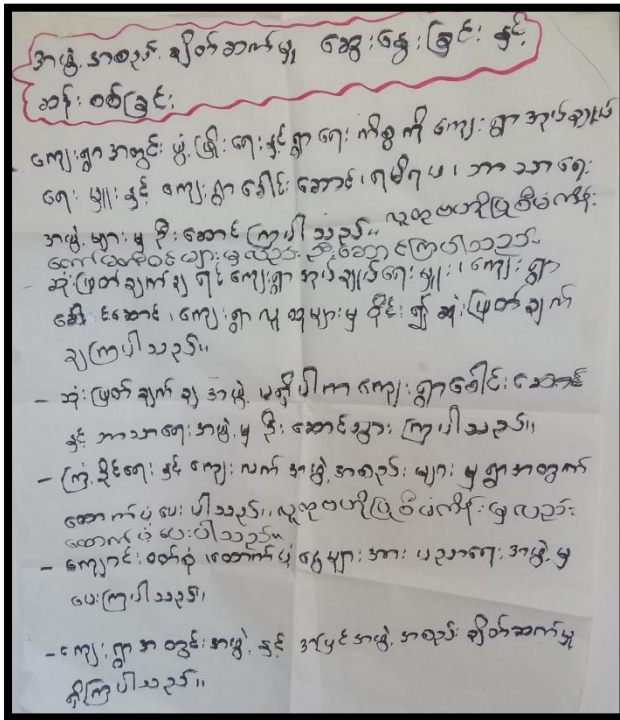 အဖွဲ့အစည်း ချိတ်ဆက်မှု ဆွေးနွေးခြင်း နှင့်
ဆန်းစစ်ခြင်း
- ကျေးရွာအတွင်း ဖွံ့ဖြိုးရေးနှင့်ရွာရေး ကိစ္စကို ကျေးရွာအုပ်ချုပ်
ရေးမှူးနှင့် ကျေးရွာခေါင်းဆောင်၊ ရမိရဖ၊ ဘာသာရေး
အဖွဲ့များမှ ဦးဆောင်ကြပါသည်။ လူထုဗဟိုပြုစီမံကိန်း
ကော်မတီဝင်များမှလည်း ဦးဆောင်ကြပါသည်။
- ဆုံးဖြတ်ချက်ချရင်ကျေးရွာအုပ်ချုပ်ရေးမှူး၊ ကျေးရွာ
ခေါင်းဆောင်၊ ကျေးရွာလူထုများမှ ဝိုင်း၍ ဆုံးဖြတ်ချက်
ချကြပါသည်။
- ဆုံးဖြတ်ချက်ချ အဖွဲ့ မရှိပါက ကျေးရွာခေါင်းဆောင်
နှင့် ဘာသာရေးအဖွဲ့မှ ဦးဆောင်သွားကြပါသည်။
- ကြံ့ခိုင်ရေးနှင့်ကျေးလက် အဖွဲ့အစည်းများမှရွာအတွက်
ထောက်ပံ့ပေးပါသည်။ လူထုဗဟိုပြုစီမံကိန်းမှလည်း
ထောက်ပံ့ပေးပါသည်။
- ကျောင်းဝတ်စုံ၊ ထောက်ပံ့ငွေများအား ပညာရေးအဖွဲ့မှ
ပေးကြပါသည်။
- ကျေးရွာအတွင်းအဖွဲ့နှင့် အပြင်အဖွဲ့အစည်းချိတ်ဆက်မှု
ရှိကြပါသည်။